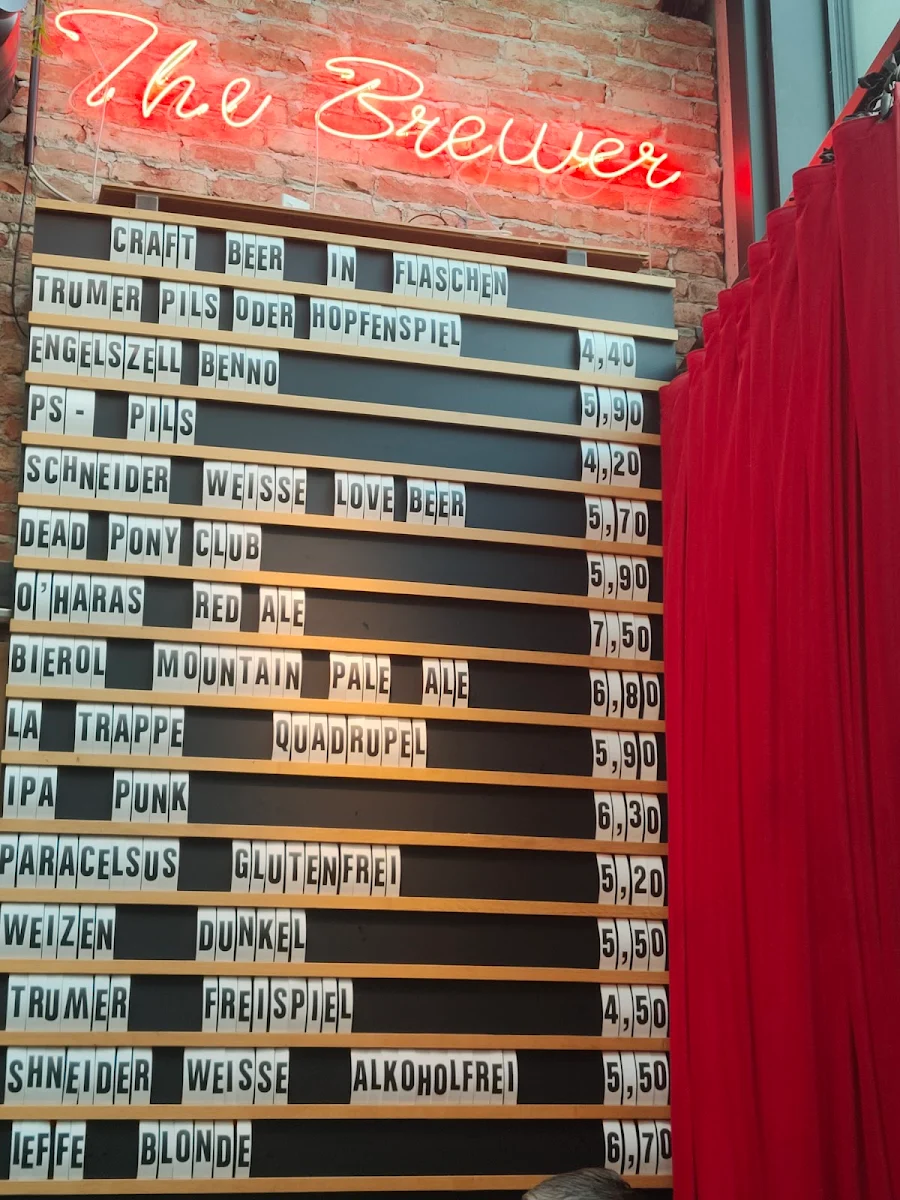 The Brewer
CRAFT BEER IN FLASCHEN
TRUMER PILS ODER HOPFENSPIEL 4,40
ENGELSZELL BENNO 5,90
PS- PILS 4,20
SCHNEIDER WEISSE LOVE BEER 5,70
DEAD PONY CLUB 5,90
O'HARAS RED ALE 7,50
BIEROL MOUNTAIN PALE ALE 6,80
LA TRAPPE QUADRUPEL 5,90
IPA PUNK 6,30
PARACELSUS GLUTENFREI 5,20
WEIZEN DUNKEL 5,50
TRUMER FREISPIEL 4,50
SHNEIDER WEISSE ALKOHOLFREI 5,50
IEFFE BLONDE 6,70